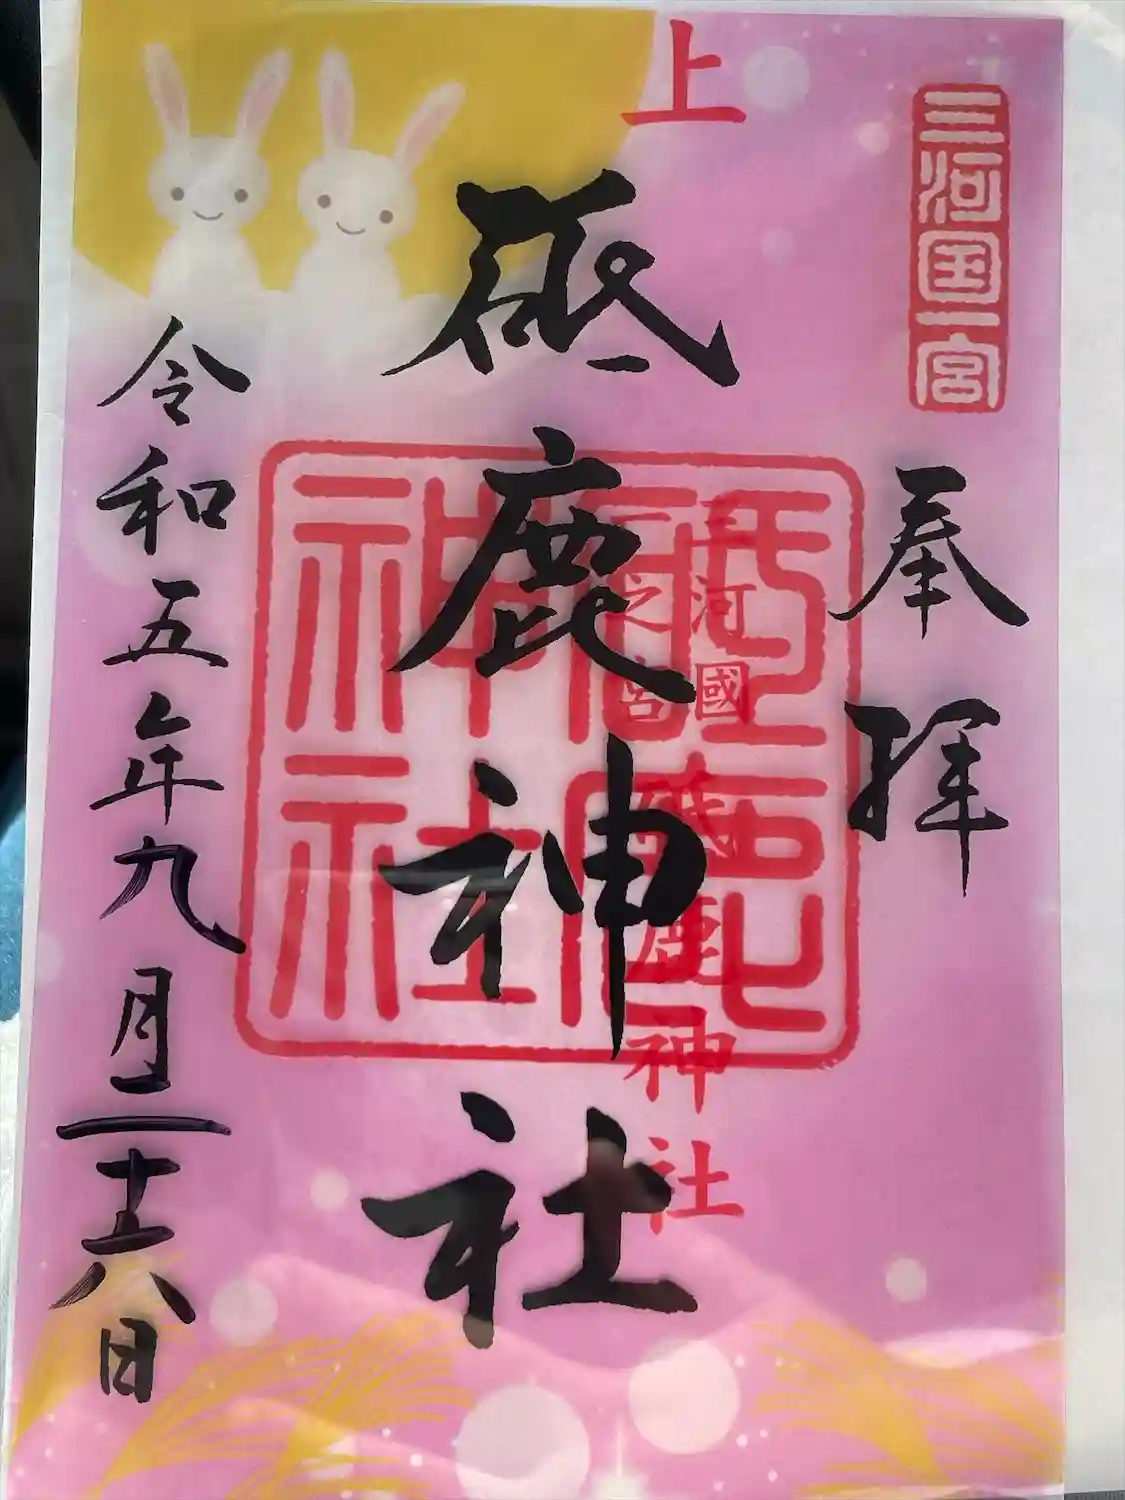 三河国一宮
奉拝
上
三河國
一之宮
砥鹿神社
砥鹿神社
砥鹿神社
令和五年九月二十六日